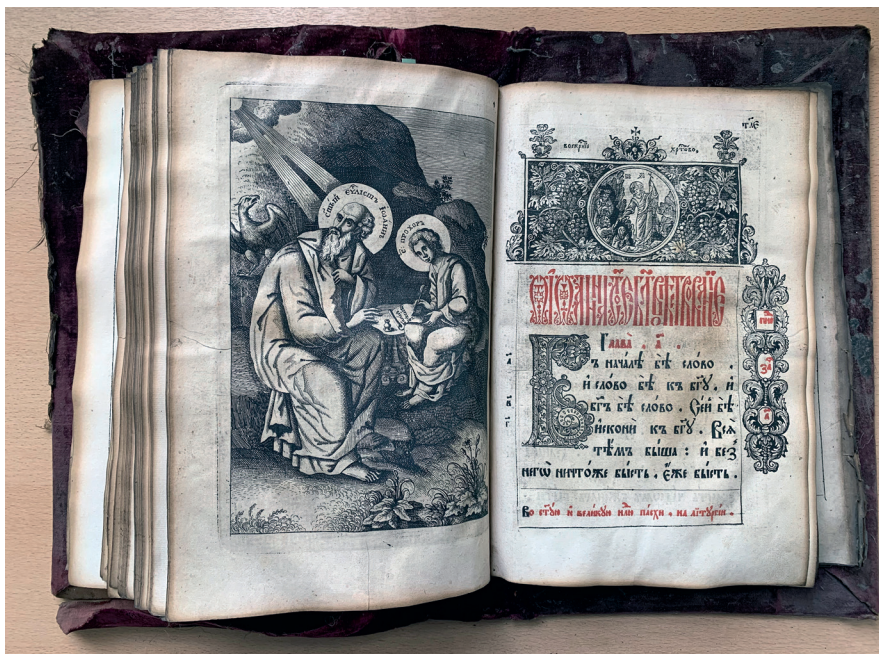 ст҃ый єѵⷢ҇листъ іѡаннъ
с҃ прохоръ
воскр҇нїе хр҇тово.
Глава . а҃ .
Въ нача́лѣ бѣ̀ сло́во .
и҆ сло́во бѣ̀ къ бг҃ꙋ , и҆
бг҃ъ бѣ̀ сло́во . Се́й бѣ̀
и҆сконѝ къ бг҃ꙋ . Всѧ̑
тѣ́мъ бы́ша : и҆ без̾
негѡ̀ ничто́же бы́сть , є҆́же бы́сть .
Во ст҃ꙋю и҆ вели́кꙋю нл҃ю па́схи . на лїтꙋргі́и .